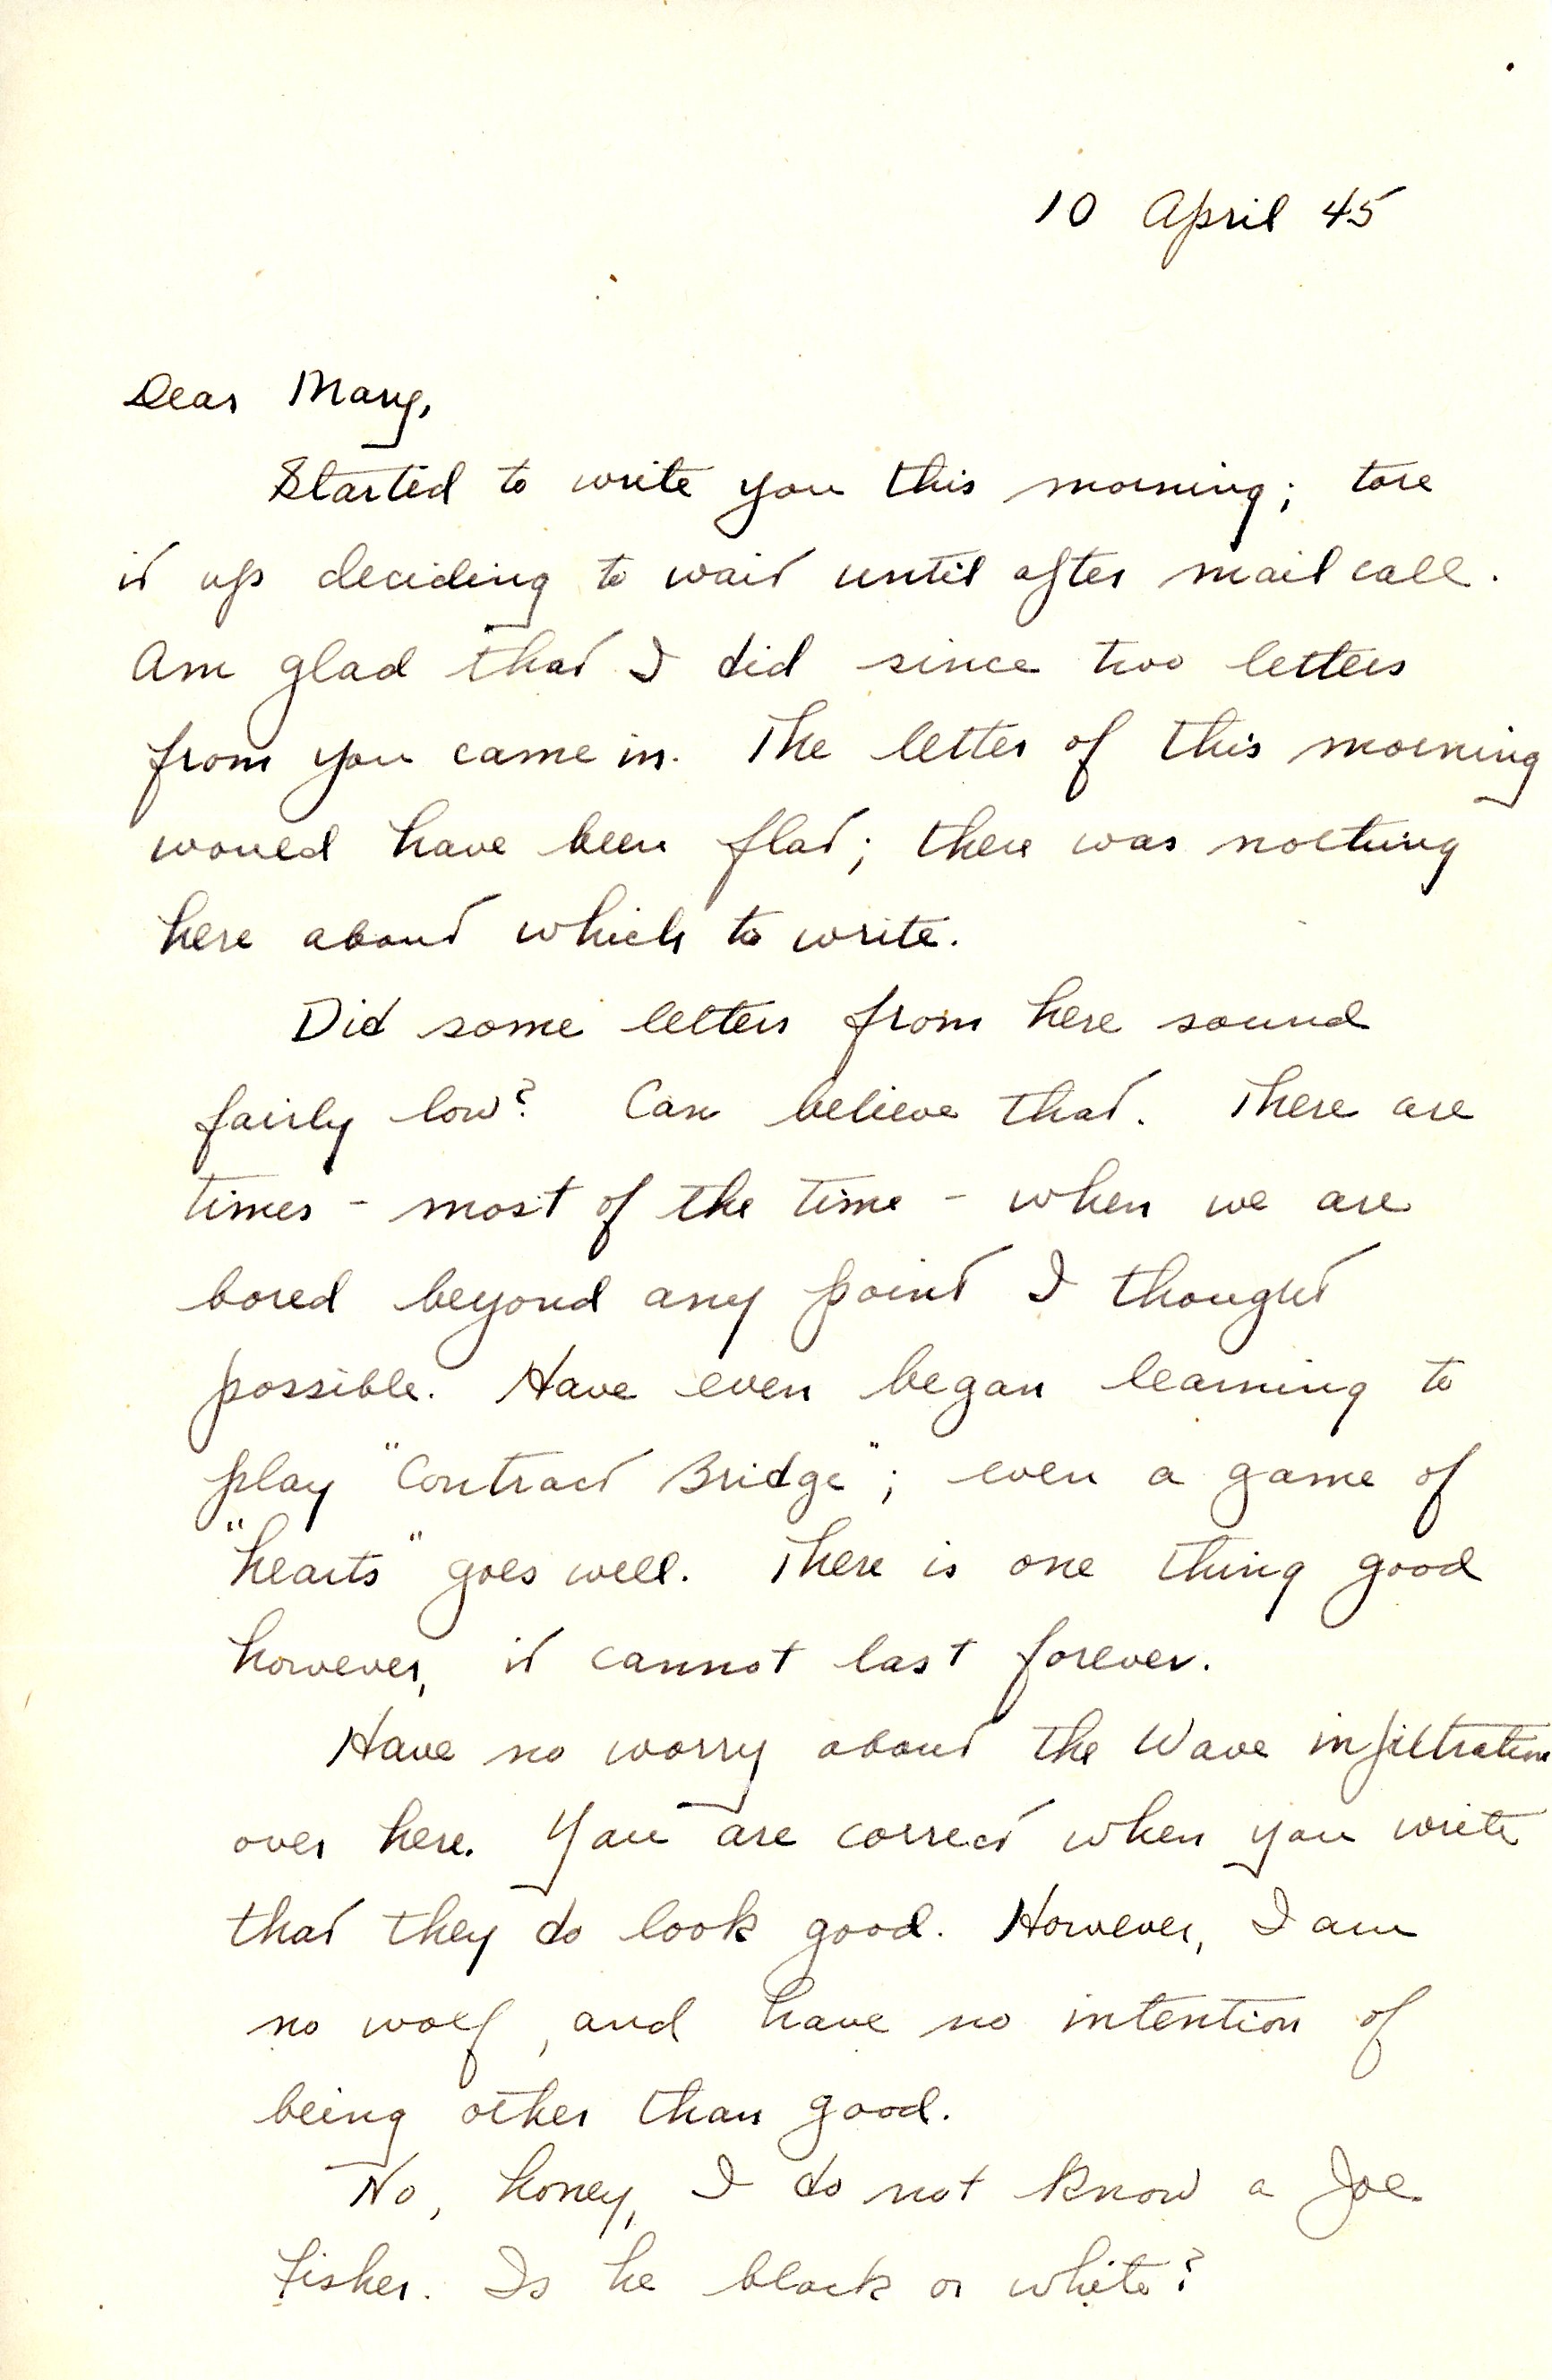 10 April 45
Dear Mary,
Started to write you this morning; tore
it up deciding to wait until after mail call.
Am glad that I did since two letters
from you came in. The letter of this morning
would have been flat; there was nothing
here about which to write.
Did some letters from here sound
fairly low? Can believe that. There are
times - most of the time - when we are
bored beyond any point I thought
possible. Have even began learning to
play "Contract Bridge"; even a game of
"hearts" goes well. There is one thing good
however, it cannot last forever.
Have no worry about the Wave infiltration
over here. You are correct when you write
that they do look good. However, I am
no wolf, and have no intention of
being other than good.
No, honey, I do not know a Joe
Fisher. Is he black or white?